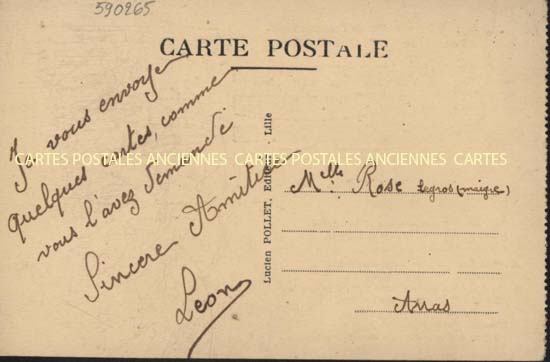 590265
CARTE POSTALE
Je vous envoye
quelques cartes, comme
vous l'avez demandé
Sincere Amitiées
Leon
Lucien POLLET, Editeur Lille
Melle Rose Legros (maigre)
Arras
CARTES POSTALES ANCIENNES CARTES POSTALES ANCIENNES CARTES